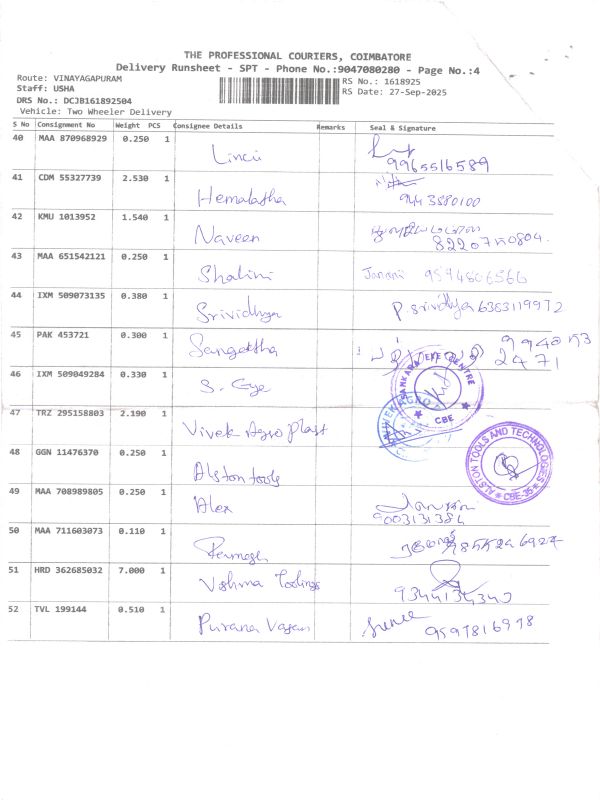 THE PROFESSIONAL COURIERS, COIMBATORE
Delivery Runsheet - SPT - Phone No.:9047080280 - Page No.:4
Route: VINAYAGAPURAM
Staff: USHA
DRS No.: DCJB161892504
Vehicle: Two Wheeler Delivery
RS No.: 1618925
RS Date: 27-Sep-2025
S No Consignment No Weight PCS Consignee Details Remarks Seal & Signature
40 MAA 870968929 0.250 1 Lincii 9965516589
41 CDM 55327739 2.530 1 Hemalatha 9443880100
42 KMU 1013952 1.540 1 Naveen
43 MAA 651542121 0.250 1 Shalini Janani 9594806566
44 IXM 509073135 0.380 1 Srividhya P. Srividhya 6383119972
45 PAK 453721 0.300 1 Sangeetha 2471
46 IXM 509049284 0.330 1 S. Eye SANKARA EYE CENTRE CBE
47 TRZ 295158803 2.190 1 Vivek Agro plast
48 GGN 11476370 0.250 1 Alston tools ALSTON TOOLS AND TECHNOLOGIES CBE-35
49 MAA 708989805 0.250 1 Alex 9003131384
50 MAA 711603073 0.110 1
51 HRD 362685032 7.000 1 Toolings 9344134340
52 TVL 199144 0.510 1 Purana Vasan 9597816978